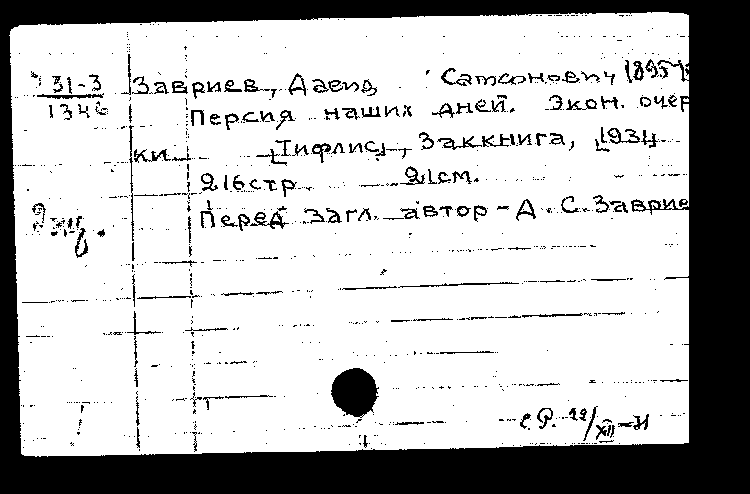 31-3
1346
Завриев, Давид Самсонович 1895
Персия наших дней. Экон. очер
ки [Тифлис], Заккнига, 1931
216 стр. 21 см.
2 экз.
Перед загл. автор - Д. С. Заврие
С.Р. 22/XII-31